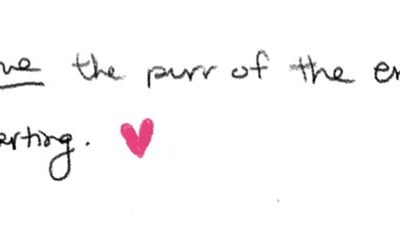 ve the purr of the en
erting.